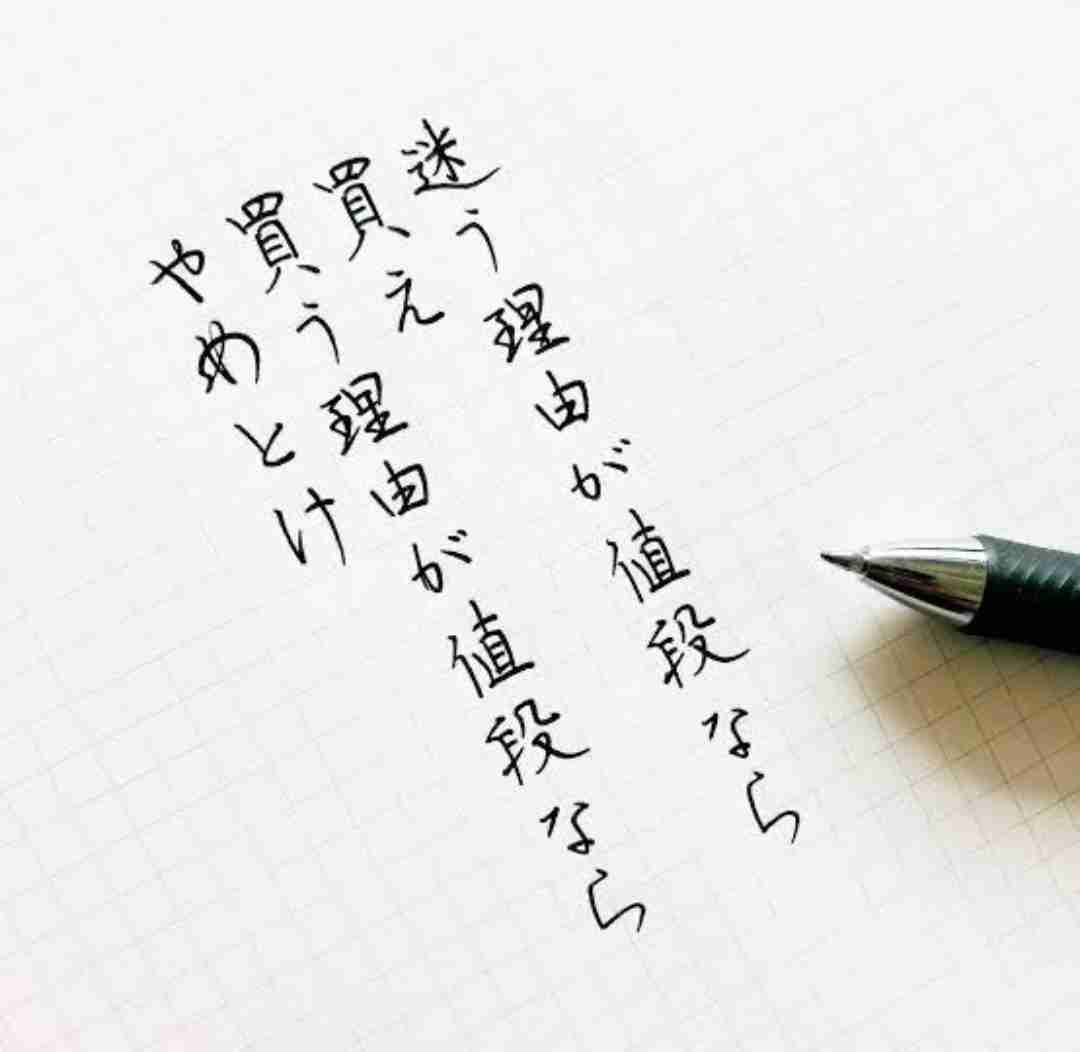 迷う理由が値段なら
買え
買う理由が値段なら
やめとけ